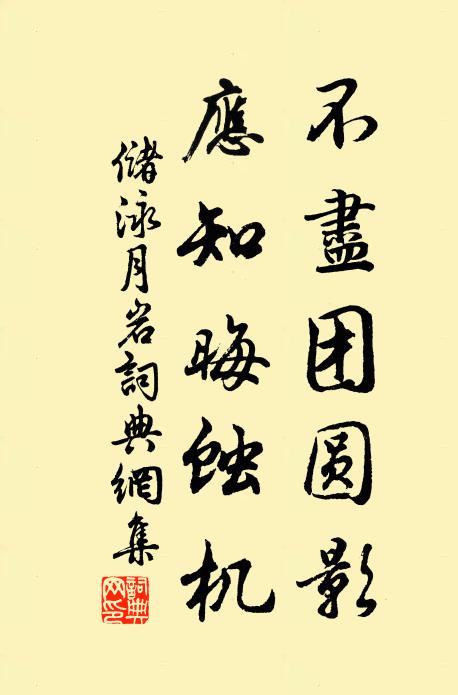 不盡团圆影
應知晦蚀机
储泳月岩詞典網集
詞典
网印